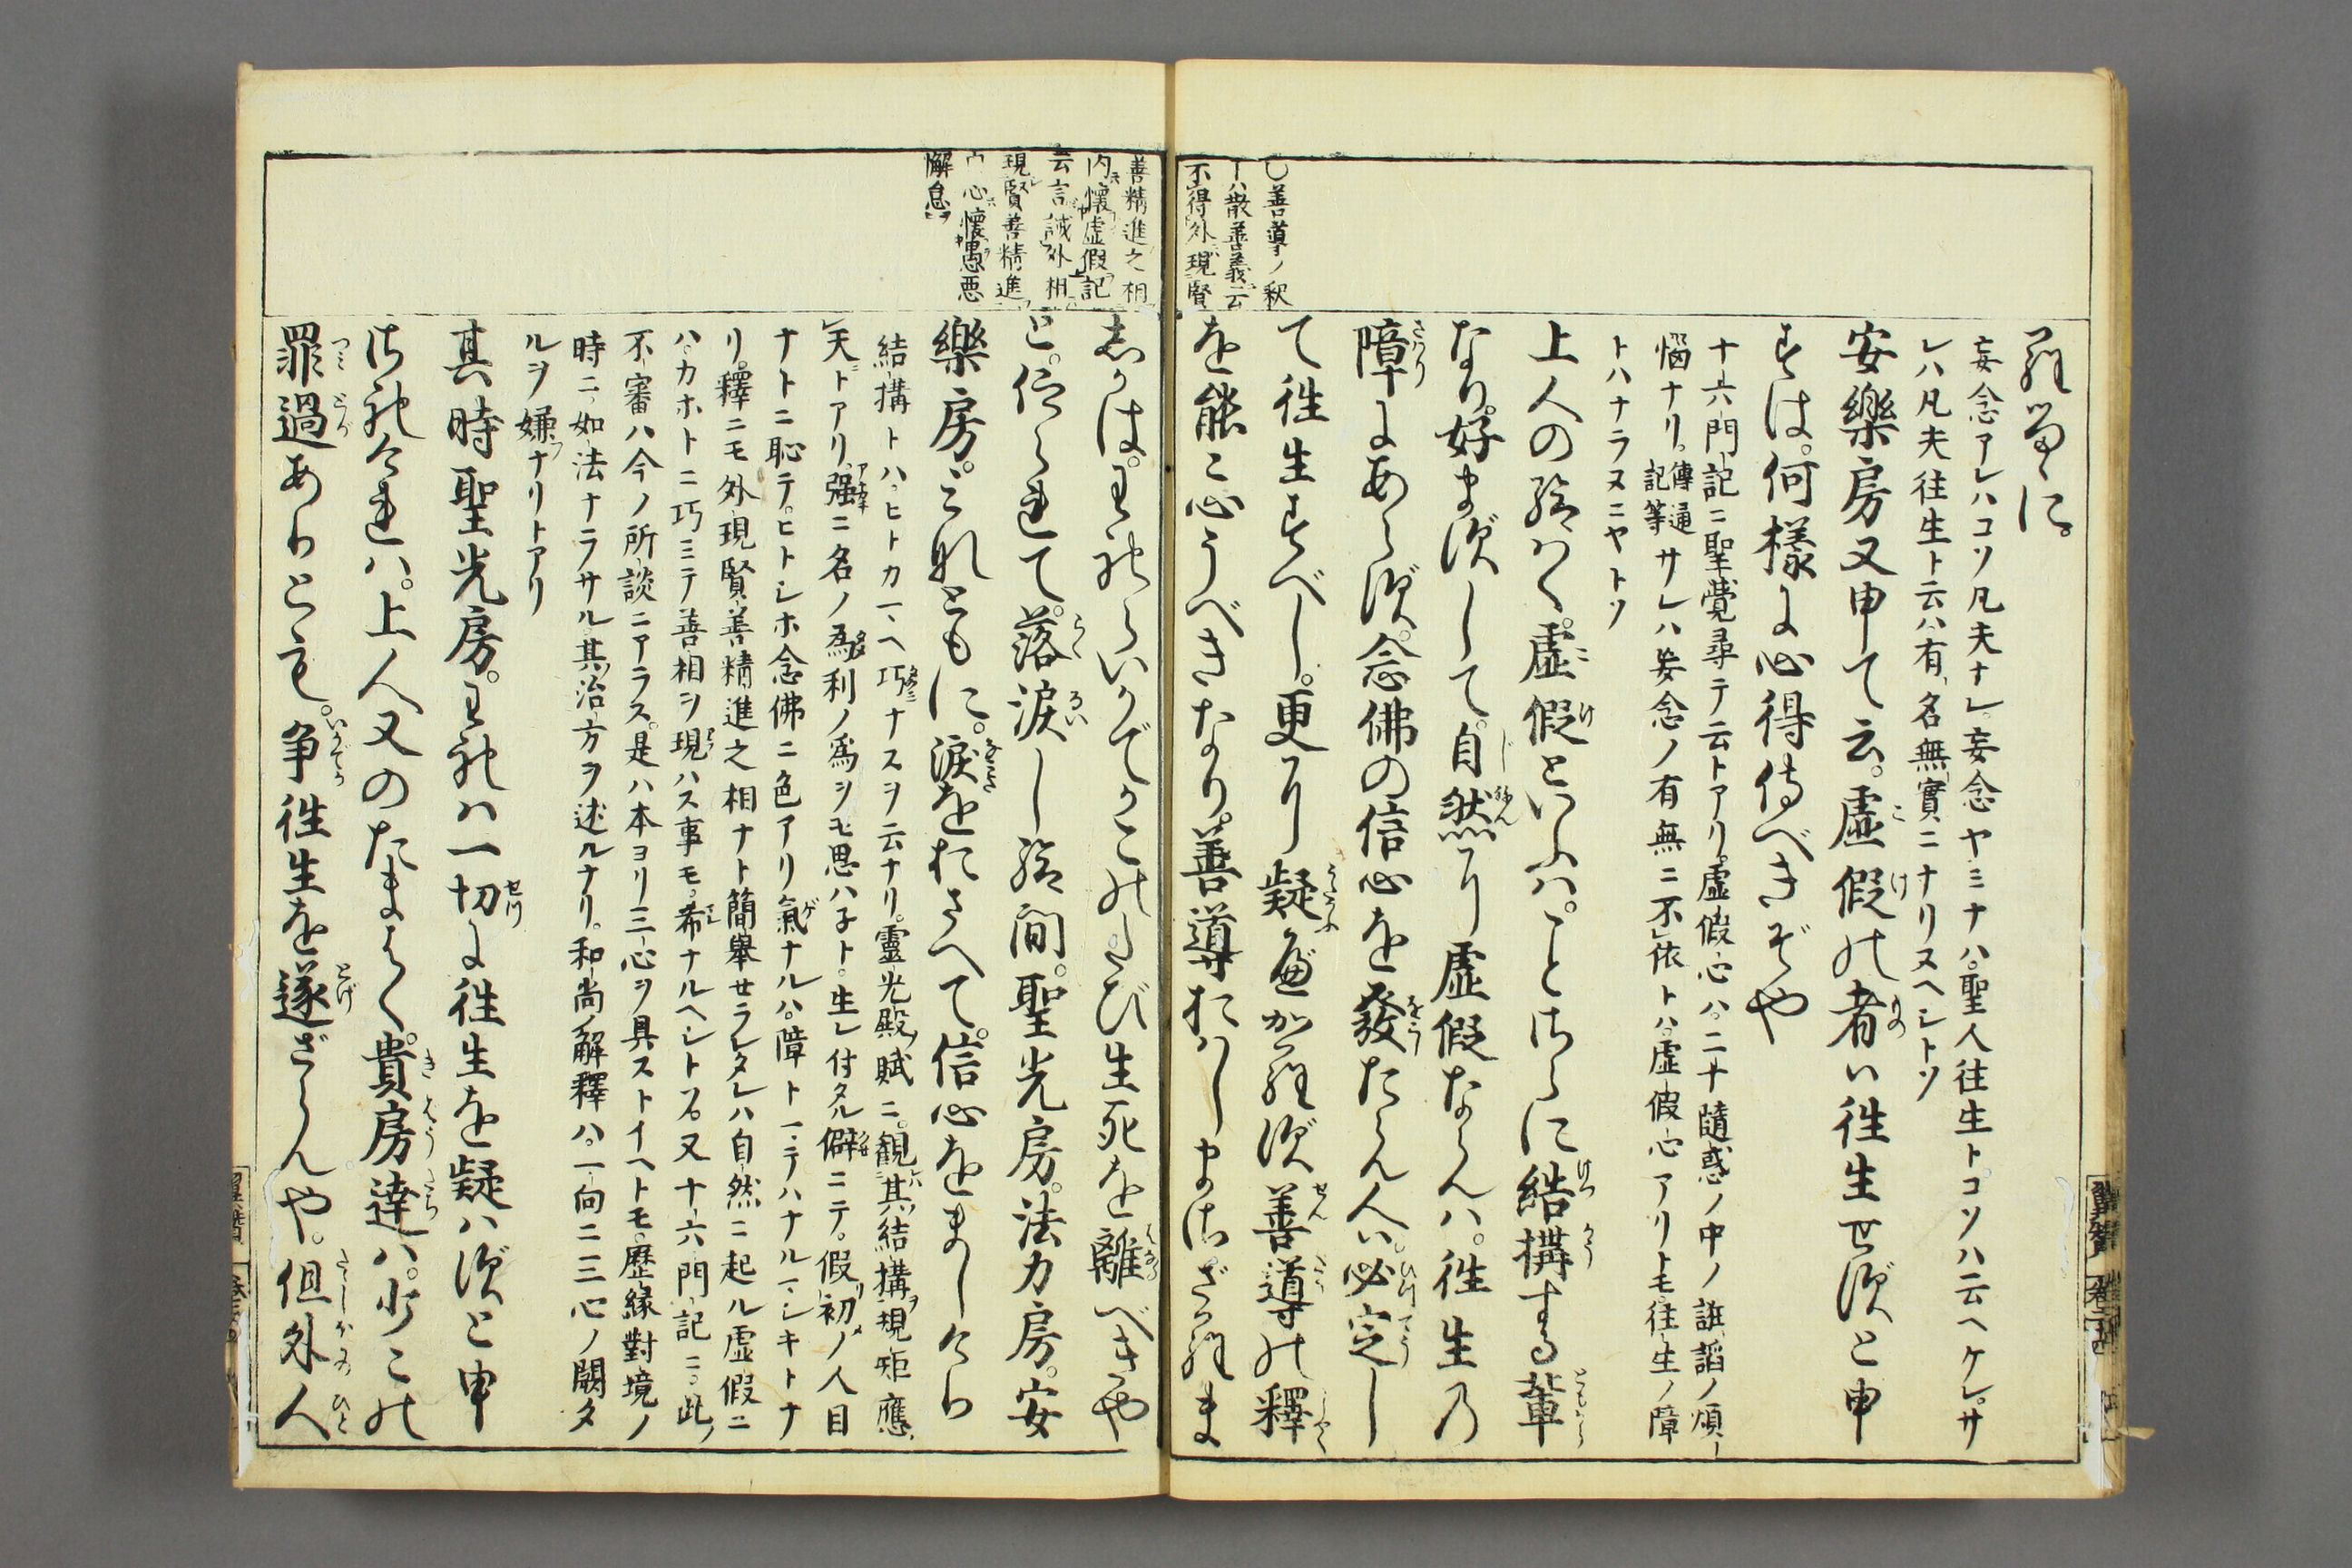 〇善導ノ釈
トハ散善義云
不得外現賢
善精進之相
内懐虚假記
云言誠外相
現賢善精進
内心懐愚悪
懈怠
妄念アレハコソ凡夫ナレ。妄念ヤミナハ。聖人往生トコソハ云ヘケレ。サ
レハ凡夫往生ト云ハ有名無實ニナリヌヘシトソ
安樂房又申て云。虚假の者ハ往生せずと申
すは。何樣に心得侍べきぞや
十六門記ニ聖覺尋テ云トアリ。虚假心ハ。二十隨惑ノ中ノ誑諂ノ煩
惱ナリ。傳通記等サレハ妄念ノ有無ニ不依トハ。虚假心アリトモ。往生ノ障
トハナラヌニヤトソ
上人の給はく。虚假といふハ。ことさらに結構する輩
なり。好まずして。自然に虚假ならんハ。往生乃
障にあらず。念佛の信心を發たらん人ハ。必定し
て往生すべし。更に疑べからず善導の釋
を能こ心うべきなり。善導おはしまさざらま
しかは。われらいかでかこのたび生死を離べきや
と。仰られて。落涙し給間。聖光房。法力房。安
樂房。これともに。涙をおさへて。信心をましけり
結構トハ。ヒトカニ巧ナスヲ云ナリ。靈光殿賦ニ。観其結構規矩應
天トアリ。强ニ名ノ爲利ノ爲ヲモ思ハ子ト。生レ付タル僻ニテ。假初ノ人目
ナトニ恥テ。ヒトシホ念佛ニ色アリ氣ナルハ。障トニテハナルマシキトナ
リ。釋ニモ外現賢善精進之相ナト簡擧セラレタレハ自然ニ起ル虚假ニ
ハ。カホトニ巧ミテ善相ヲ現ハス事モ。希ナルヘシトソ又十六門記ニ。此ノ
不審ハ今ノ所談ニアラス。是ハ本ヨリ三心ヲ具ストイヘトモ。歷緣對境ノ
時ニ。如法ナラサル其治方ヲ述ルナリ。和尚ノ解釋ハ。一向ニ三心ノ闕タ
ルヲ嫌フナリトアリ
其時聖光房。われハ一切に往生を疑ハずと申
されけれハ。上人又のたまはく。貴房達ハ。少この
罪過ありとも。争往生を遂ざらんや。但外人